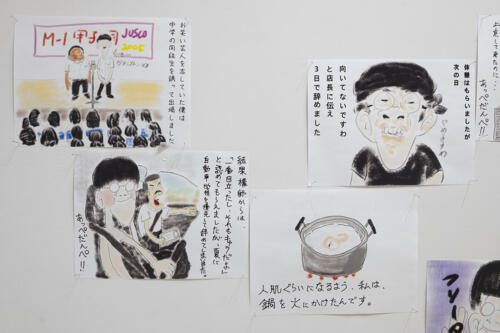 お笑い芸人を志していた僕は
中学の同級生を誘って出場しました
M-1甲子園
JUSCO
2005
体験はもらいましたが
次の日
向いてないですわ
と店長に伝え
3日で辞めました
やめますわ
上京して来たのに…
あっぺだんぺ!!
「一番目立ったし、それもキャラだよ」
と認めてもらえましたが、夏に
あっぺだんぺ!!
人肌ぐらいになるよう、私は、
鍋を火にかけたんです。
フリー